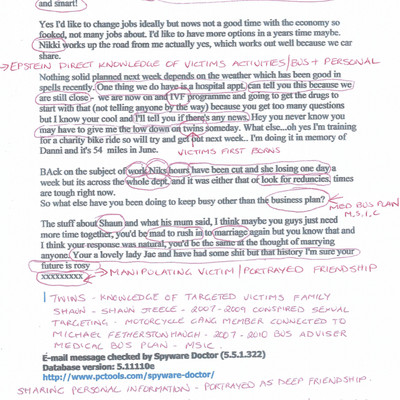 and smart!
Yes I'd like to change jobs ideally but nows not a good time with the economy so
fooked, not many jobs about. I'd like to have more options in a years time maybe.
Nikki works up the road from me actually yes, which works out well because we car
share.
→EPSTEIN DIRECT KNOWLEDGE OF VICTIMS ACTIVITIES/BUS + PERSONAL
Nothing solid planned next week depends on the weather which has been good in
spells recently. One thing we do have is a hospital appt, can tell you this because we
are still close - we are now on and IVF programme and going to get the drugs to
start with that (not telling anyone by the way) because you get too many questions
but I know your cool and I'll tell you if there's any news. Hey you never know you
may have to give me the low down on twins someday. What else...oh yes I'm training
for a charity bike ride so will try and get out next week.. I'm doing it in memory of
Danni and it's 54 miles in June.
VICTIMS FIRST BORNS
BAck on the subject of work Niks hours have been cut and she losing one day a
week but its across the whole dept, and it was either that or look for reduncies, times
are tough right now.
So what else have you been doing to keep busy other than the business plan?
MED BUS PLAN
M.S.I.C
The stuff about Shaun and what his mum said, I think maybe you guys just need
more time together, you'd be mad to rush in to marriage again but you know that and
I think your response was natural, you'd be the same at the thought of marrying
anyone. Your a lovely lady Jac and have had some shit but that history I'm sure your
future is rosy
xxxxxxxxx
→MANIPULATING VICTIM/PORTRAYED FRIENDSHIP
TWINS - KNOWLEDGE OF TARGETED VICTIMS FAMILY
SHAUN - SHAUN STEELE - 2007-2009 CONSPIRED SEXUAL
TARGETING - MOTORCYCLE GANG MEMBER CONNECTED TO
MICHAEL FETHERSTONHAUGH - 2007-2010 BUS ADVISER
MEDICAL BUS PLAN - MSIC.
E-mail message checked by Spyware Doctor (5.5.1.322)
Database version: 5.11110e
http://www.pctools.com/spyware-doctor/
SHARING PERSONAL INFORMATION - PORTRAYED AS DEEP FRIENDSHIP.